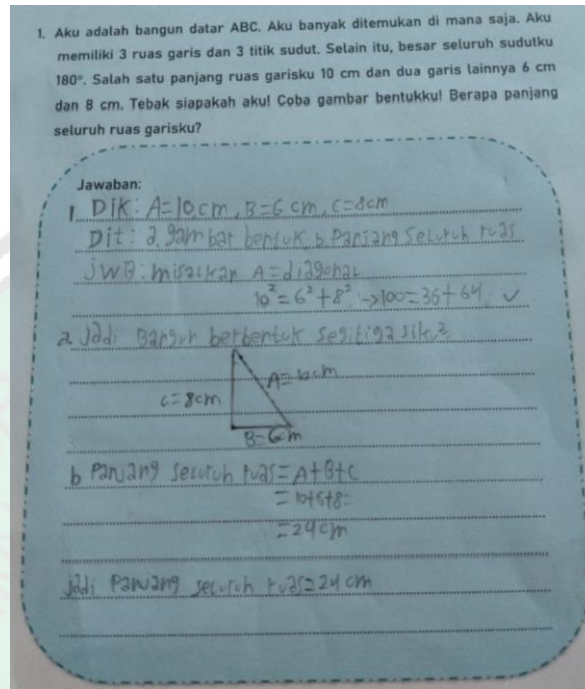 1. Aku adalah bangun datar ABC. Aku banyak ditemukan di mana saja. Aku
memiliki 3 ruas garis dan 3 titik sudut. Selain itu, besar seluruh sudutku
180°. Salah satu panjang ruas garisku 10 cm dan dua garis lainnya 6 cm
dan 8 cm. Tebak siapakah aku! Coba gambar bentukku! Berapa panjang
seluruh ruas garisku?
Jawaban:
1. Dik: A=10cm, B=6 cm, C=8cm
Dit: a. gambar bentuk b. Panjang Seluruh ruas
JWB: misalkan A=diagonal
10²=6²+8² →100=36+64 ✓
a. Jadi Bangun berbentuk segitiga siku²
A=10cm
C=8cm
B=6cm
b Panjang seluruh ruas=A+B+C
=10+6+8
=24cm
jadi Panjang seluruh ruas=24 cm